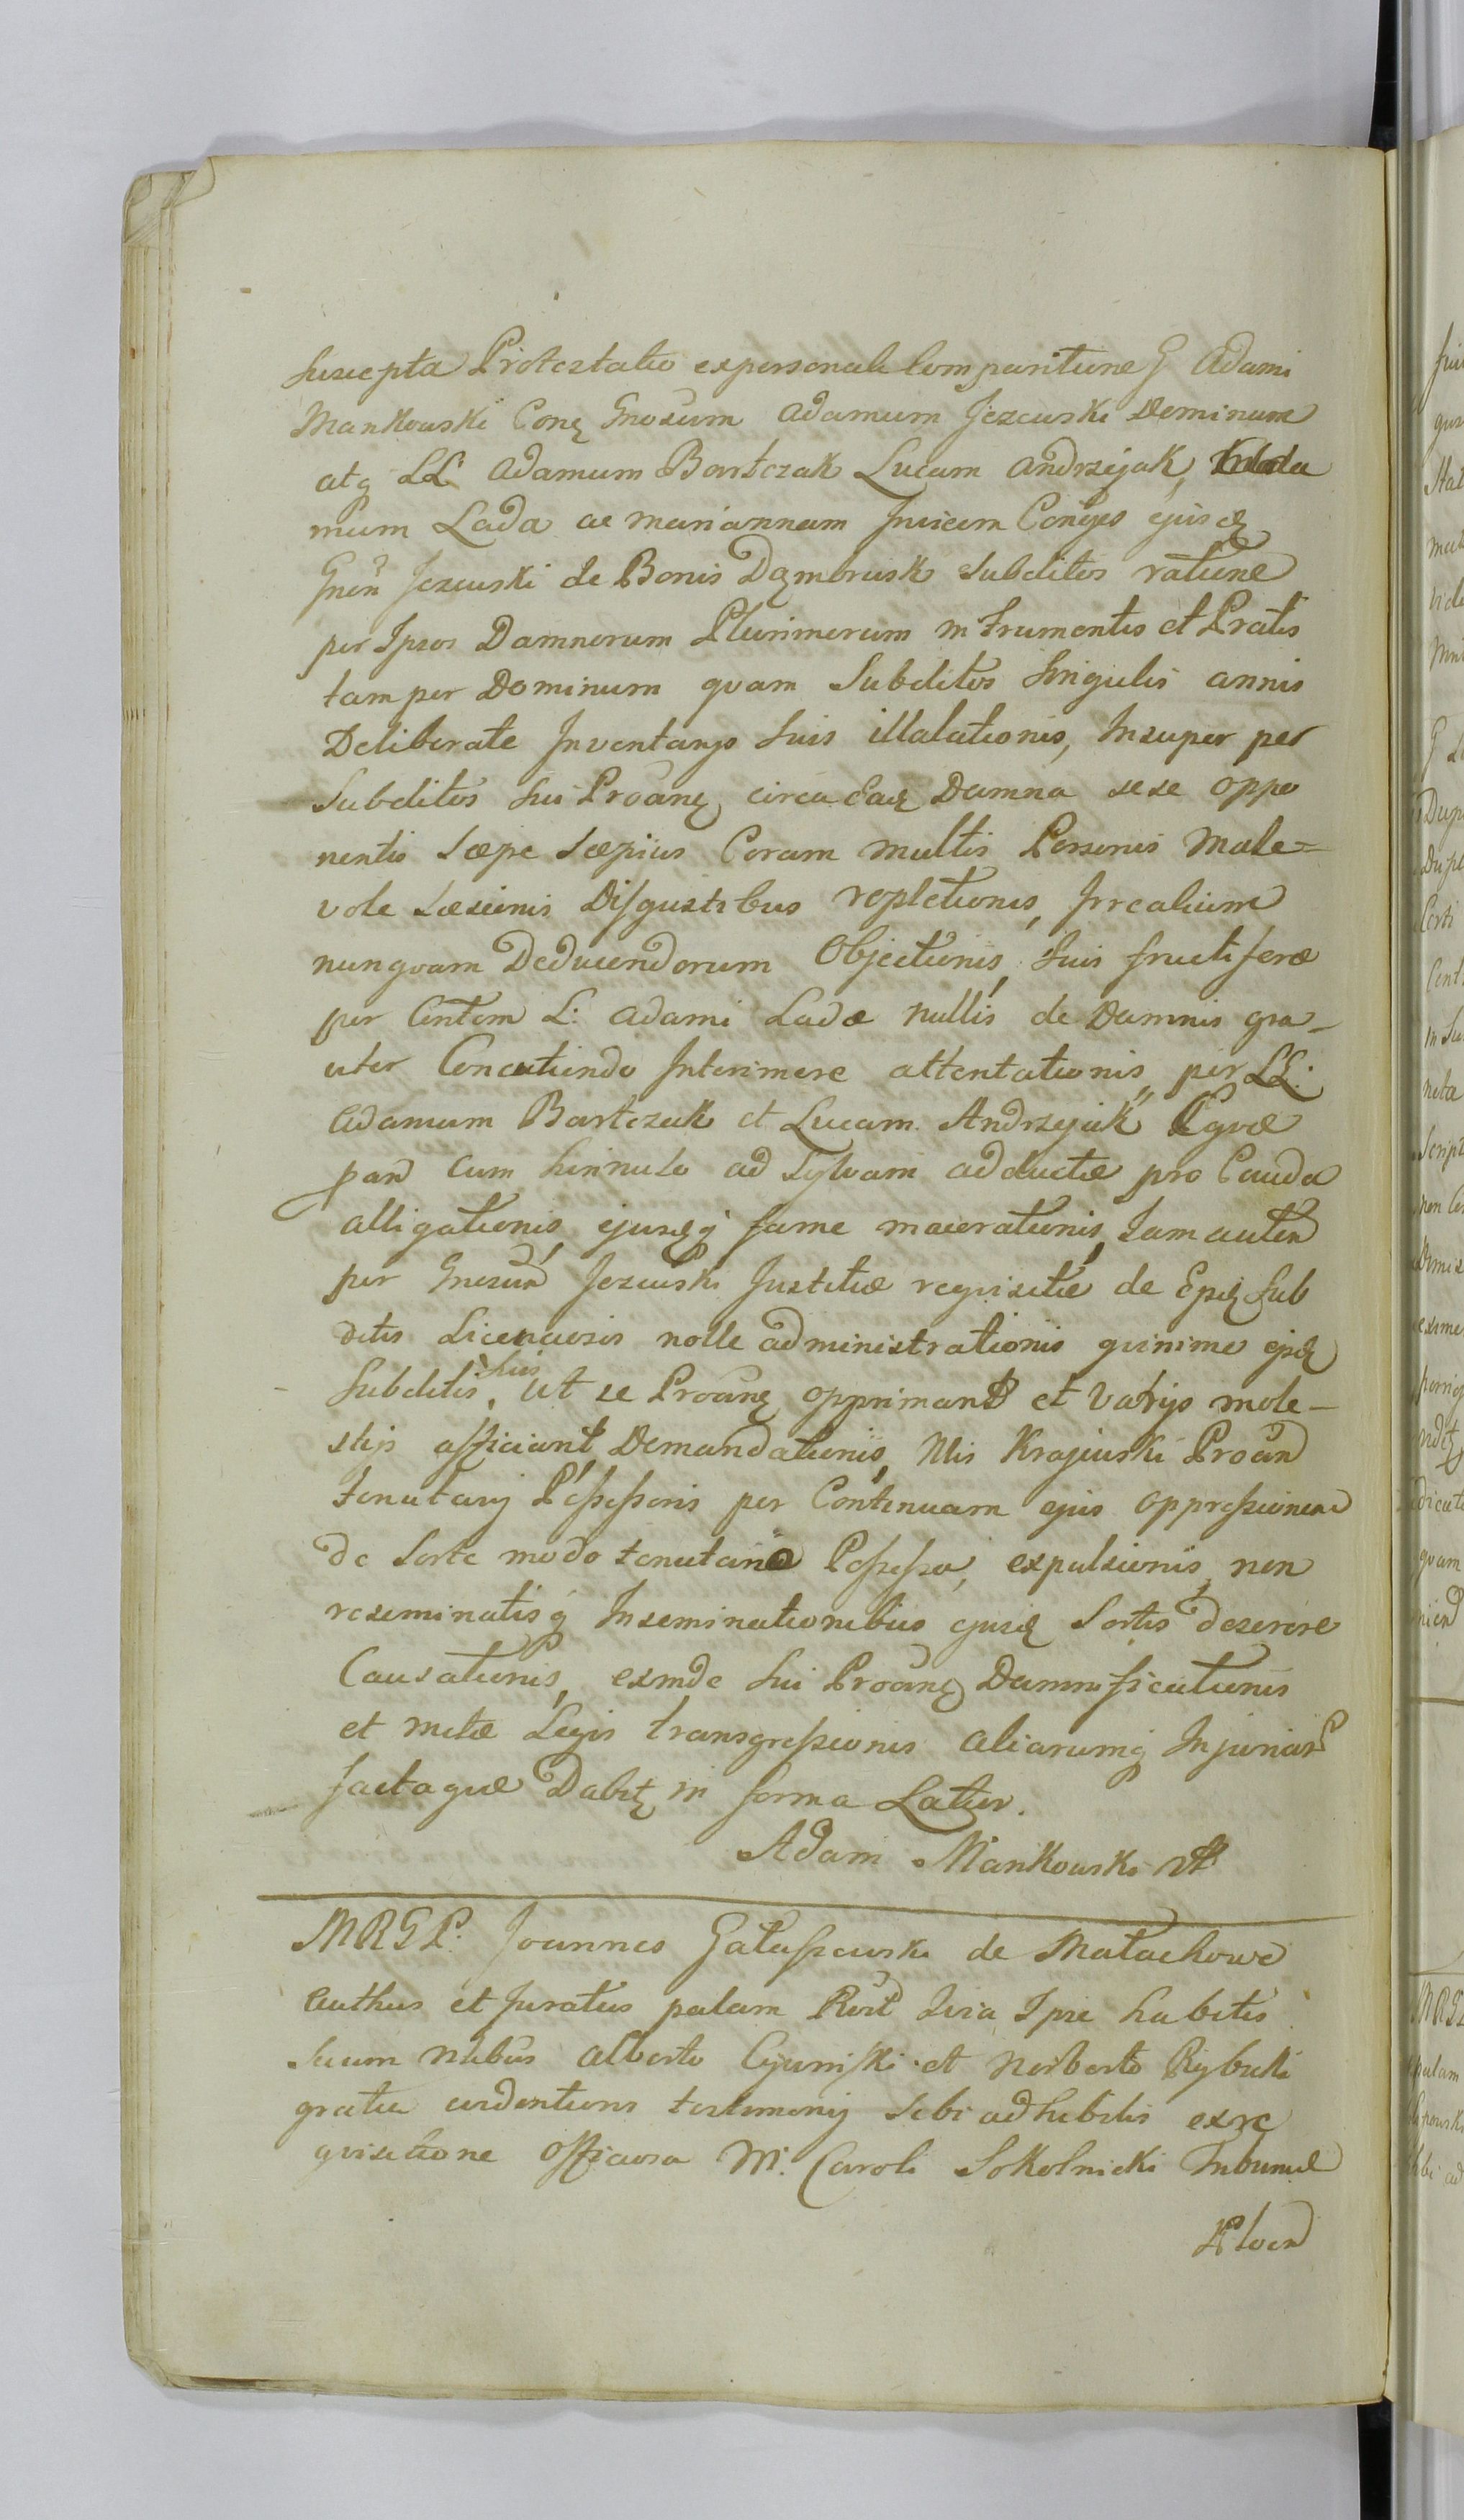 Suscepta Protestatio expersonali Comparitione G Adami
Mankowski Conq Gnosum Adamum Jezewski Dominum
atq LL Adamum Bartczak Lucam Andrzejak,
mum Lada ac mariannam Invicem Coniges ejusd
Gnen Jezewski de Bonis Dąmbrusk Subditos ratione
per Ipsos Damnorum Plurimorum in frumentis et Pratis
tam per Dominum quam Subditos Singulis annis
Deliberate Inventarys suis illalationis, Insuper per
Subditos sui Proanq circa Ead Damna sese oppo
nentis Sæpe Sæpius Coram multis Personis Male=
vole Læsionis Disgustibus repletionis, Irrealium
nunquam Deducendorum Objectionis, suis fructiferæ
per Contem L: Adami Ladæ nullis de Damnis gra-
uter Concutiendo Interimere attentationis, per LL:
Adamum Bartczak et Lucam Andrzejak Eqvæ
pan cum hinnulo ad Sylvam adductæ pro Cauda
alligationis, ejusdq fame macerationis, Jam autem
per Gnosum Jezewski Justitiæ requisitæ de Epsd Sub
ditis Licenciosis nolle administrationis quinimo ejsd
Subditis suis, ut se Proanq opprimant et Varijs mole-
stijs afficiant, Demandationis, Mis Krajewski Proan
Tenutarij Possessoris per Continuam ejus oppressionem
de Sorte modo tenutario Possessa, expulsionis, non
reseminatisq Inseminationibus ejusd Sortis deserere
Causationis, exinde sui Proanq Damnificationis
et metæ Legis transgressionis aliarumq Injuriar
facta quæ Dabit in forma Latior.
Adam Mankowski
MRGP. Joannes Gałaszewski de Małachowo
authus et Juratus palam Rert Sua Ipse habitis
secum nobus Alberto Cywinski et Norberto Rybicki
gratia evidentioris testimonij sibi adhibitis exre
quisitione officiosa M. Caroli Sokolnicki Tribunal